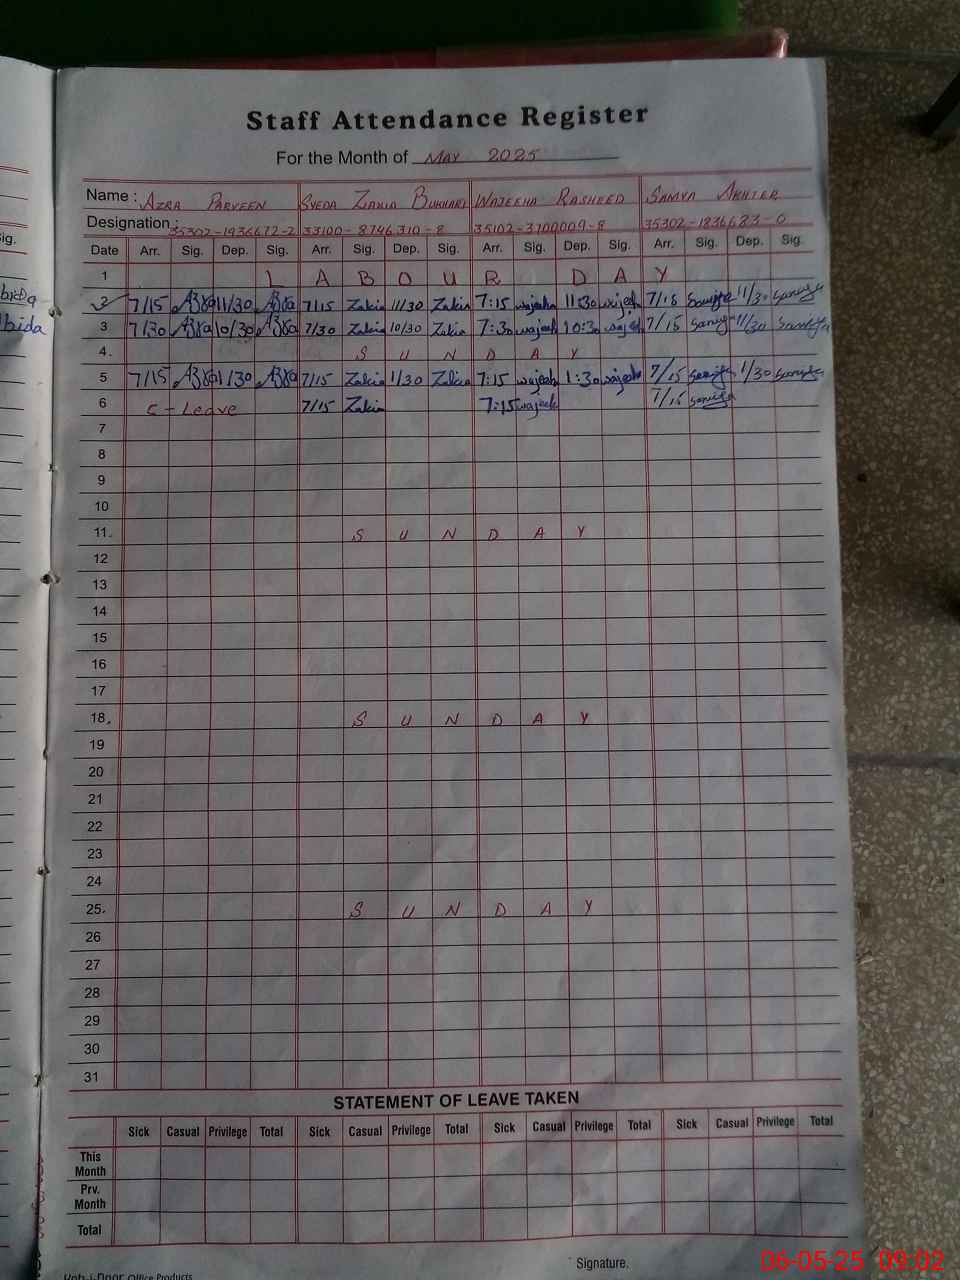 Staff Attendance Register
For the Month of MAY 2025
Name : AZRA PARVEEN SYEDA ZAKIA BUKHARI WAJEEHA RASHEED SANIYA AKHTER
Designation : 35302-1936672-2 33100-8746310-8 35102-3700009-8 35302-1836683-0
Date Arr. Sig. Dep. Sig. Arr. Sig. Dep. Sig. Arr. Sig. Dep. Sig. Arr. Sig. Dep. Sig.
1 L A B O U R D A Y
2 7/15 11/30 7/15 Zakia 11/30 Zakia 7:15 wajeeha 11:30 wajeeh 7/15 Saniya 11/30 Saniya
3 7/30 10/30 7/30 Zakia 10/30 Zakia 7:30 wajeeh 10:30 wajeeh 7/15 Saniya 11/30 Saniya
4. S U N D A Y
5 7/15 1/30 7/15 Zakia 1/30 Zakia 7:15 wajeeh 1:30 wajeeha 7/15 Saniya 1/30 Saniya
6 C - Leave 7/15 Zakia 7:15 wajeeh 7/15 Saniya
7
8
9
10
11. S U N D A Y
12
13
14
15
16
17
18. S U N D A Y
19
20
21
22
23
24
25. S U N D A Y
26
27
28
29
30
31
STATEMENT OF LEAVE TAKEN
Sick Casual Privilege Total Sick Casual Privilege Total Sick Casual Privilege Total Sick Casual Privilege Total
This
Month
Prv.
Month
Total
Signature.
Office Products
06-05-25 09:02